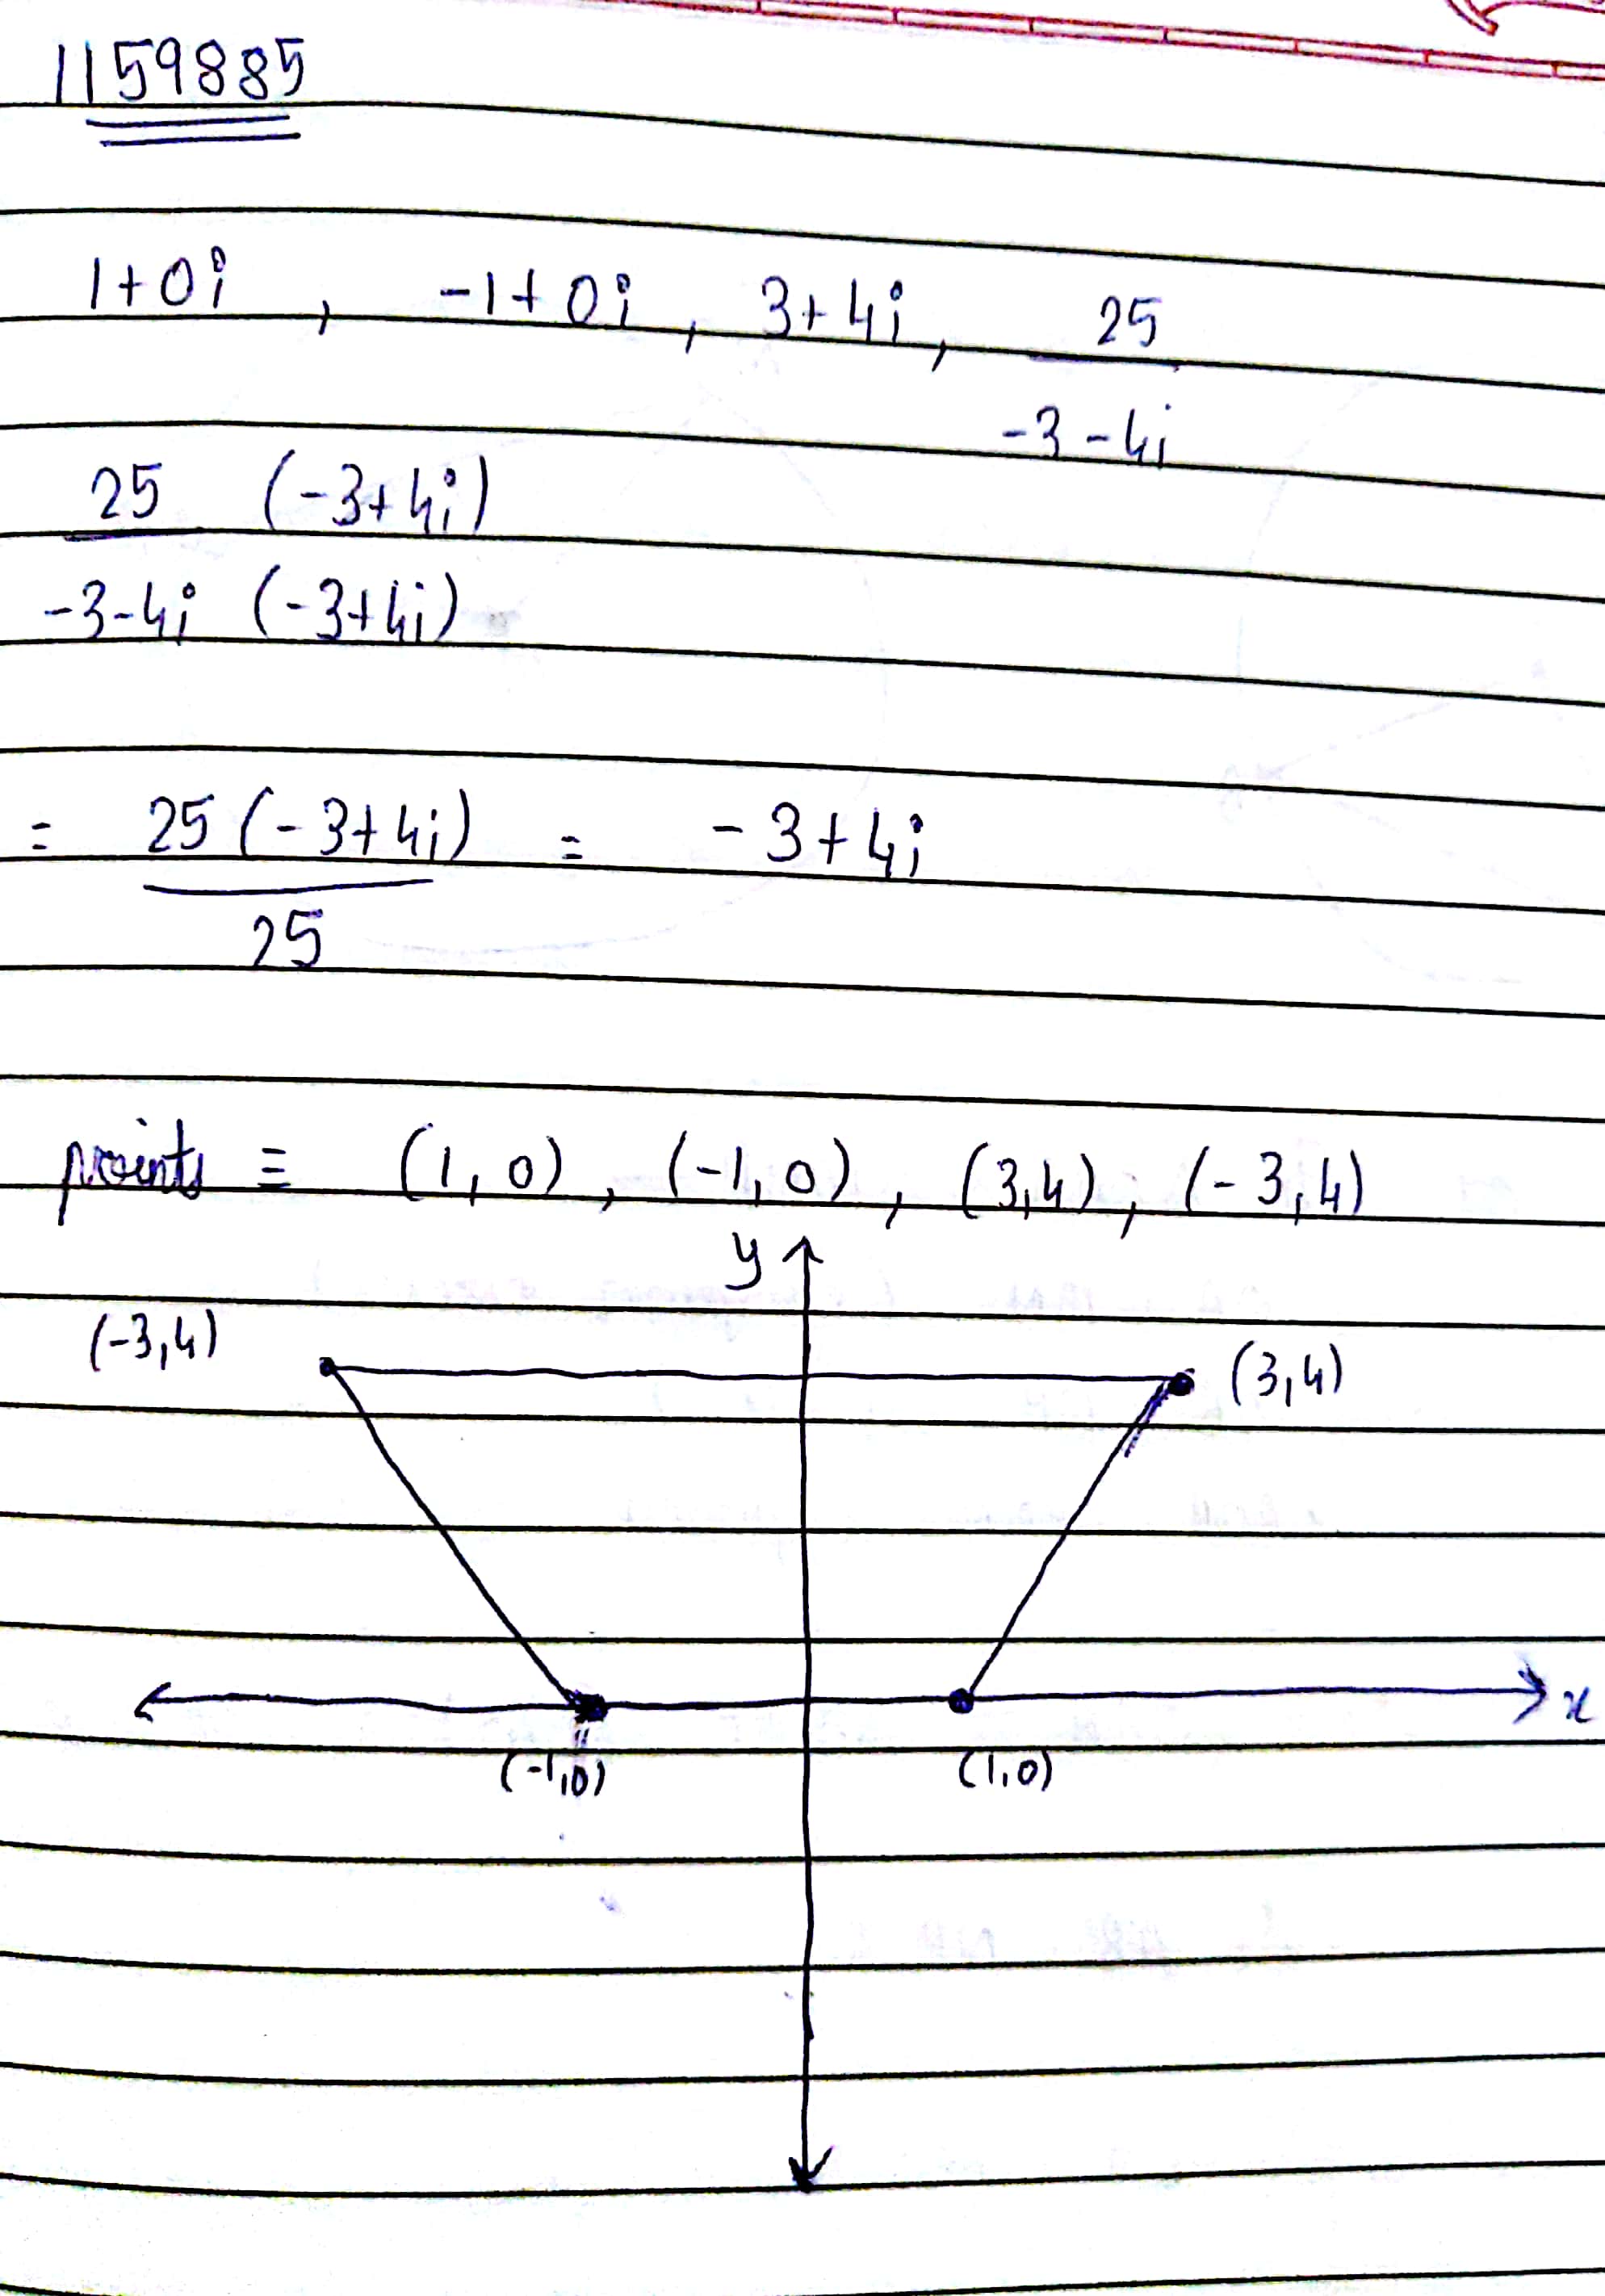 1159885
1+0i , -1+0i , 3+4i , 25
-3-4i
25 (-3+4i)
-3-4i (-3+4i)
= 25(-3+4i) = -3+4i
25
points ≡ (1,0) , (-1,0) , (3,4) , (-3,4)
y
(-3,4)
(3,4)
x
(-1,0)
(1,0)